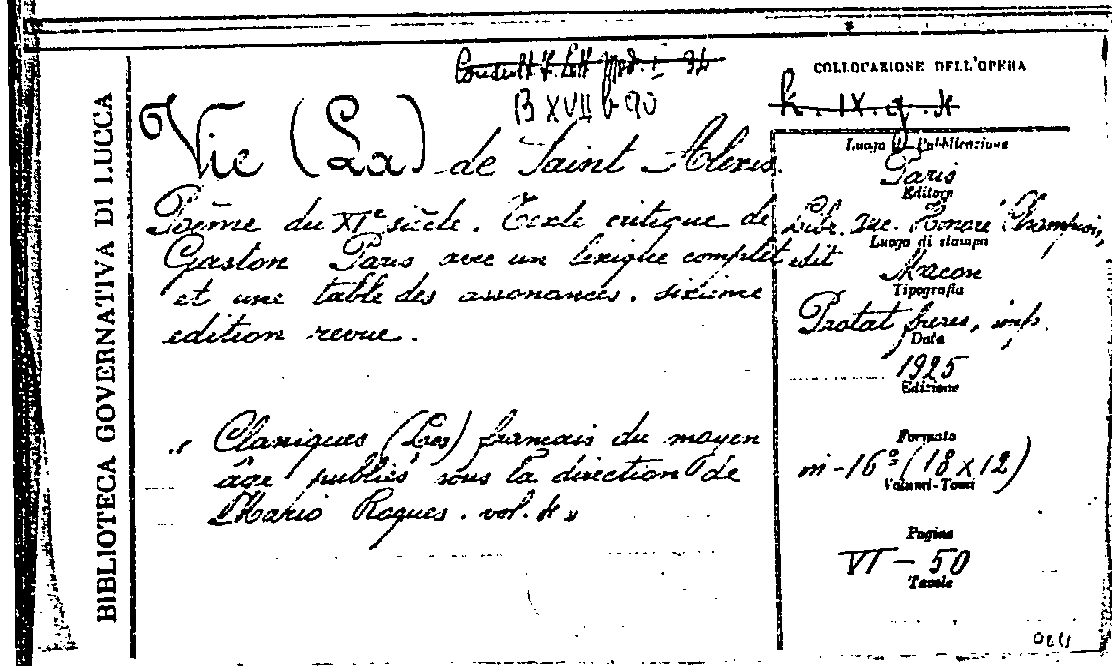 BIBLIOTECA GOVERNATIVA DI LUCCA
B XVII b 90
COLLOCAZIONE DELL'OPERA
Vie (La) de Saint Alexis.
Poème du XIe siècle. Texte critique de
Gaston Paris avec un lexique complet
et une table des assonances. sixième
edition revue.
„ Classiques (Les) français du moyen
âge publiés sous la direction de
Mario Roques. vol. 4 „
Luogo di Pubblicazione
Paris
Editore
Libr. Honoré Champion,
edit
Luogo di stampa
Macon
Tipografia
Protat freres, imp.
Data
1925
Edizione
Formato
in-16º (18 x 12)
Volumi-Tomi
Pagine
VI - 50
Tavole